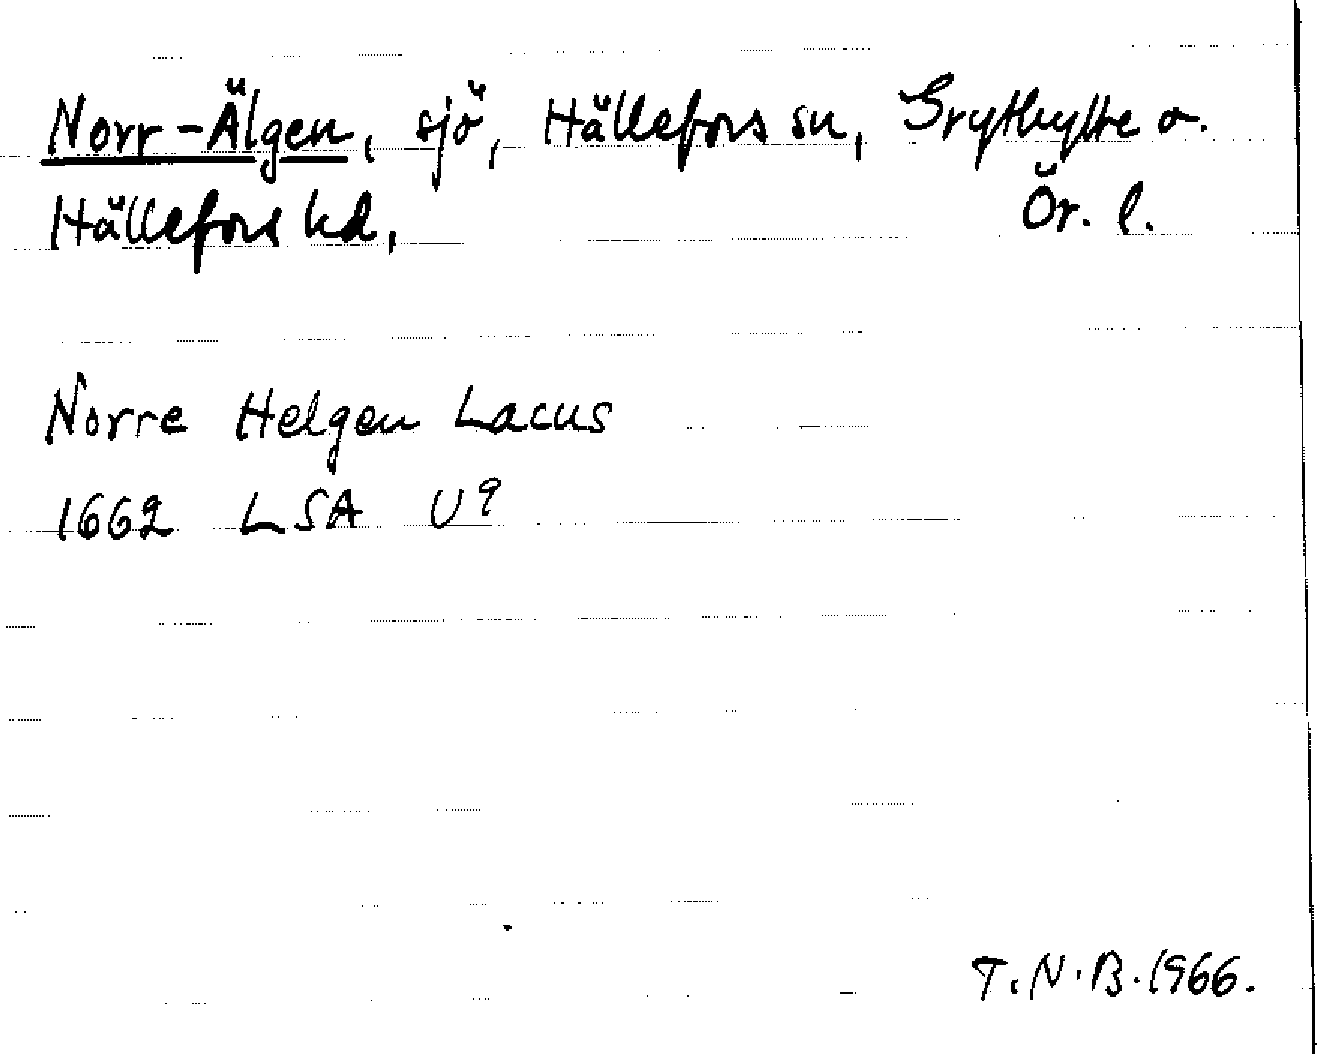 Norr-Älgen, sjö, Hällefors sn, Grythytte o.
Hällefors hd, Ör. l.
Norre Helgen Lacus
1662 LSA U9
T.N.B. 1966.